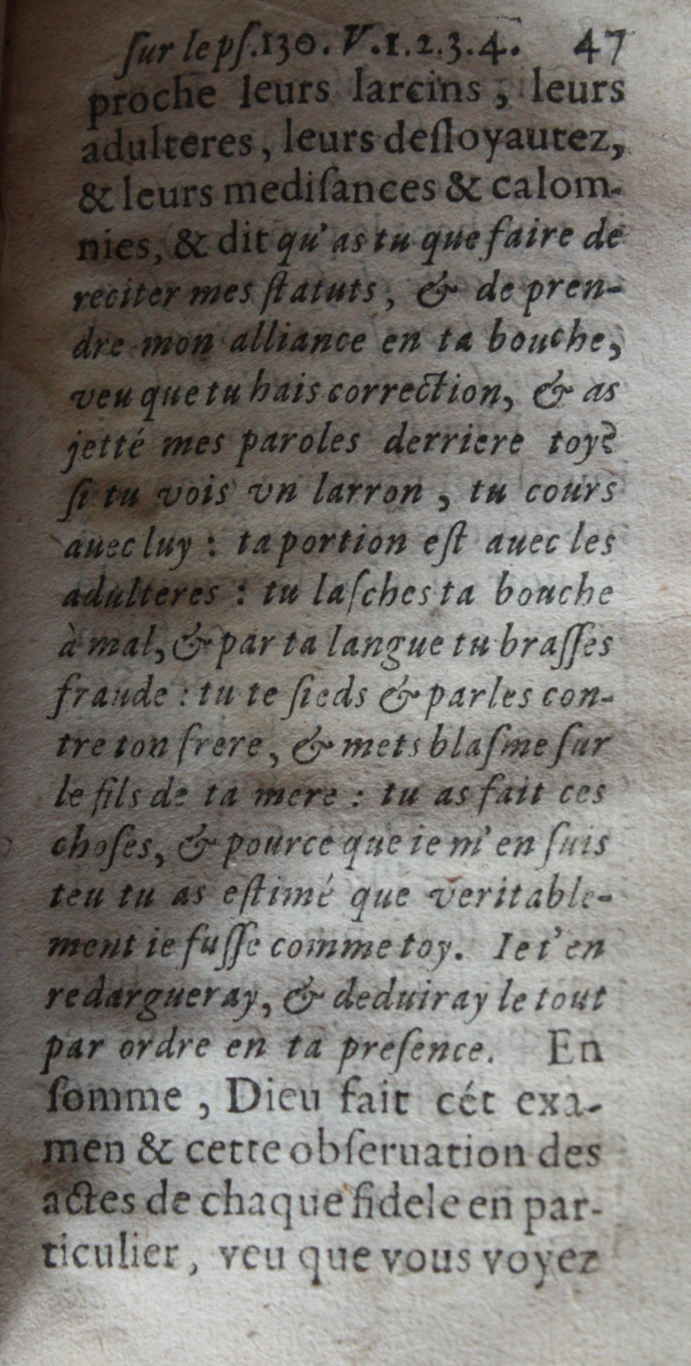 ſur le pſ.130. V.1.2.3.4. 47
proche leurs larcins , leurs
adulteres, leurs deſloyautez,
& leurs mediſances & calom-
nies, & dit qu'as tu que faire de
reciter mes ſtatuts, & de pren-
dre mon alliance en ta bouche,
veu que tu hais correction, & as
jetté mes paroles derriere toy?
ſi tu vois vn larron , tu cours
auec luy : ta portion eſt auec les
adulteres : tu laſches ta bouche
à mal, & par ta langue tu braſſes
fraude : tu te ſieds & parles con-
tre ton frere, & mets blaſme ſur
le fils de ta mere : tu as fait ces
choſes, & pource que ie m'en ſuis
teu tu as eſtimé que veritable-
ment ie fuſſe comme toy. Ie t'en
redargueray, & deduiray le tout
par ordre en ta preſence. En
ſomme , Dieu fait cét exa-
men & cette obſeruation des
actes de chaque fidele en par-
ticulier, veu que vous voyez